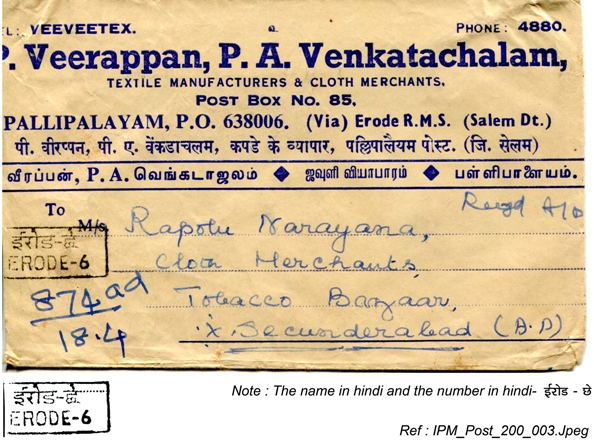 EL: VEEVEETEX. உ PHONE: 4880.
P. Veerappan, P. A. Venkatachalam,
TEXTILE MANUFACTURERS & CLOTH MERCHANTS,
POST BOX No. 85,
PALLIPALAYAM, P.O. 638006. (Via) Erode R.M.S. (Salem Dt.)
पी. वीरप्पन, पी. ए. वेंकडाचलम, कपडे के व्यापार, पल्लिपालैयम पोस्ट. (जि. सेलम)
வீரப்பன், P. A. வெங்கடாஜலம் ◆ ஜவுளி வியாபாரம் ◆ பள்ளிபாளையம்.
Regd A/D
To
M/s. Rapolu Narayana,
ईरोड-छै
ERODE-6
Cloth Merchants,
874 ad
Tobacco Bazaar,
18.4
X. Secunderabad (A.P)
ईरोड-छे
ERODE-6
Note : The name in hindi and the number in hindi- ईरोड - छे
Ref : IPM_Post_200_003.Jpeg